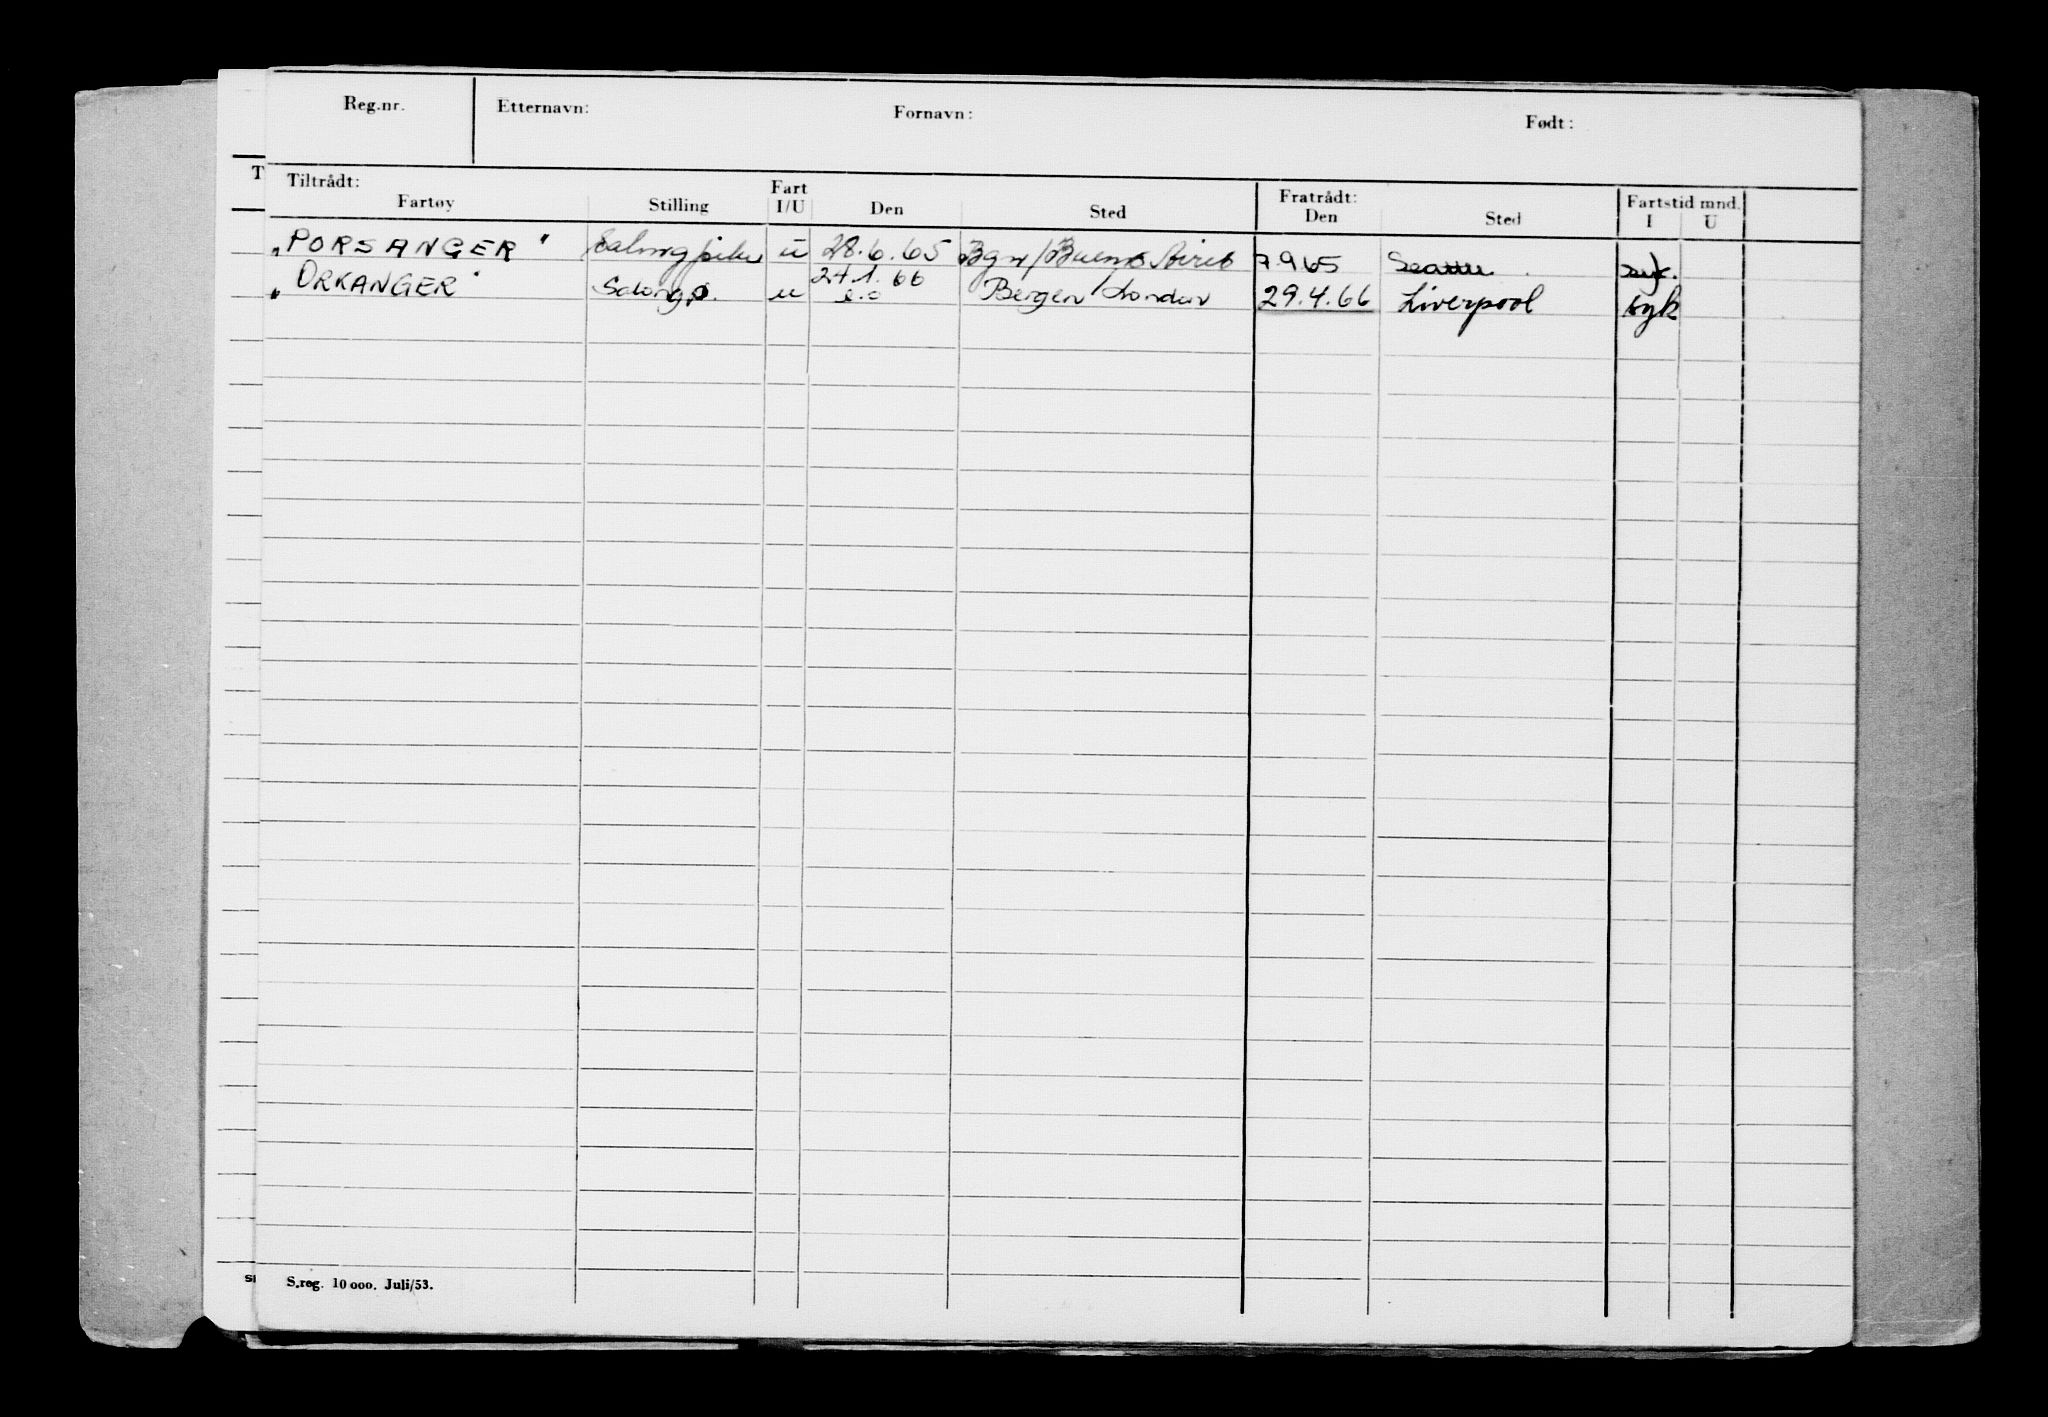 Reg.nr. Etternavn: Fornavn: Født:
T
Tiltrådt: Fartøy Stilling Fart I/U Den Sted Fratrådt: Den Sted Fartstid mnd. I U
"PORSANGER" Salongpike u 28.6.65 Bgn/Buenos Aires 7.9.65 Seattle syk.
"ORKANGER" Salongp. u 24.1.66 Bergen London 29.4.66 Liverpool syk
S.reg. 10 000. Juli/53.